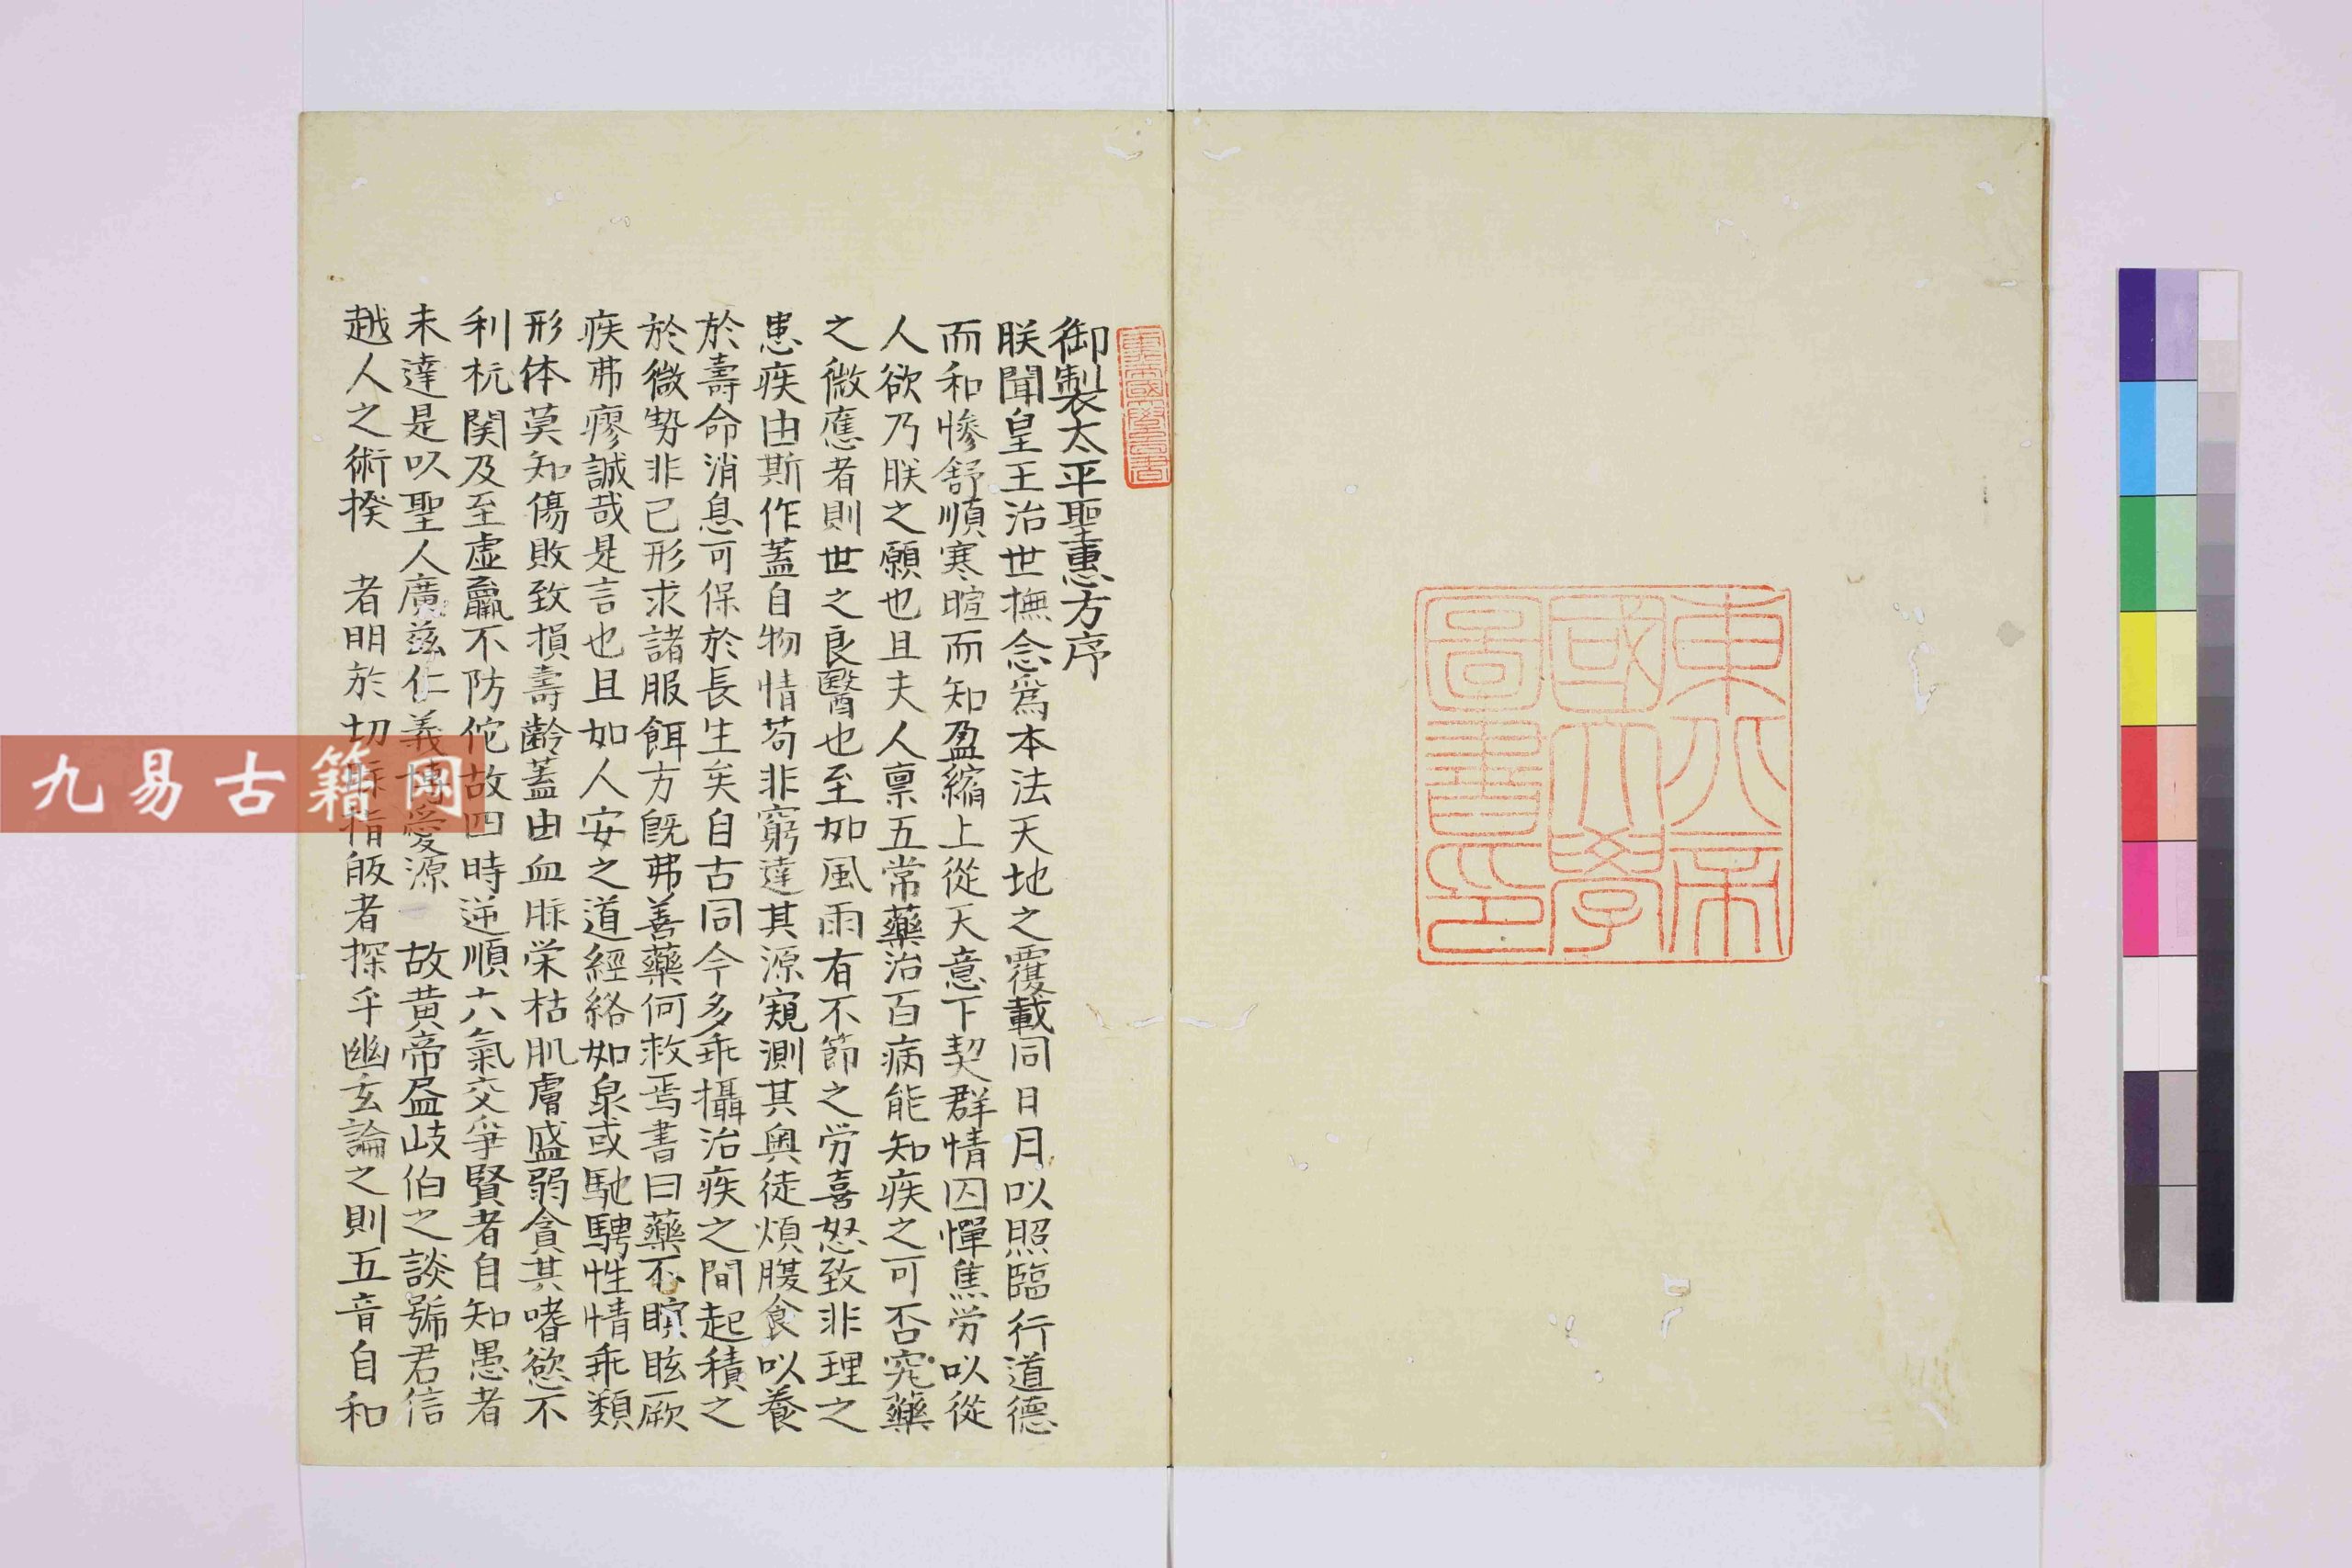 東京帝國大學圖書印
御製太平聖惠方序
朕聞皇王治世撫念爲本法天地之覆載同日月以照臨行道德
而和慘舒順寒暄而知盈縮上從天意下契群情囚憚焦労以從
人欲乃朕之願也且夫人禀五常藥治百病能知疾之可否究藥
之微應者則世之良醫也至如風雨有不節之労喜怒致非理之
患疾由斯作蓋自物情苟非窮達其源窺測其奥徒煩腹食以養
於壽命消息可保於長生矣自古同今多乖攝治疾之間起積之
於微勢非已形求諸服餌方旣弗善藥何救焉書曰藥不瞑眩厥
疾弗瘳誠哉是言也且如人安之道經絡如泉或馳騁性情乖類
形体莫知傷敗致損壽齡蓋由血脉栄枯肌膚盛弱貪其嗜慾不
利杬関及至虚羸不防佗故四時逆順六氣交爭賢者自知愚者
未達是以聖人廣茲仁義博愛源 故黄帝盡岐伯之談號君信
越人之術揆 者明於切脉指皈者探乎幽玄論之則五音自和
九易古籍网